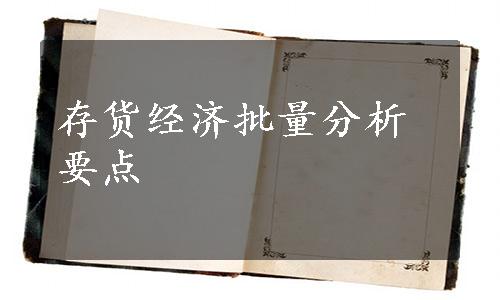 存货经济批量分析
要点